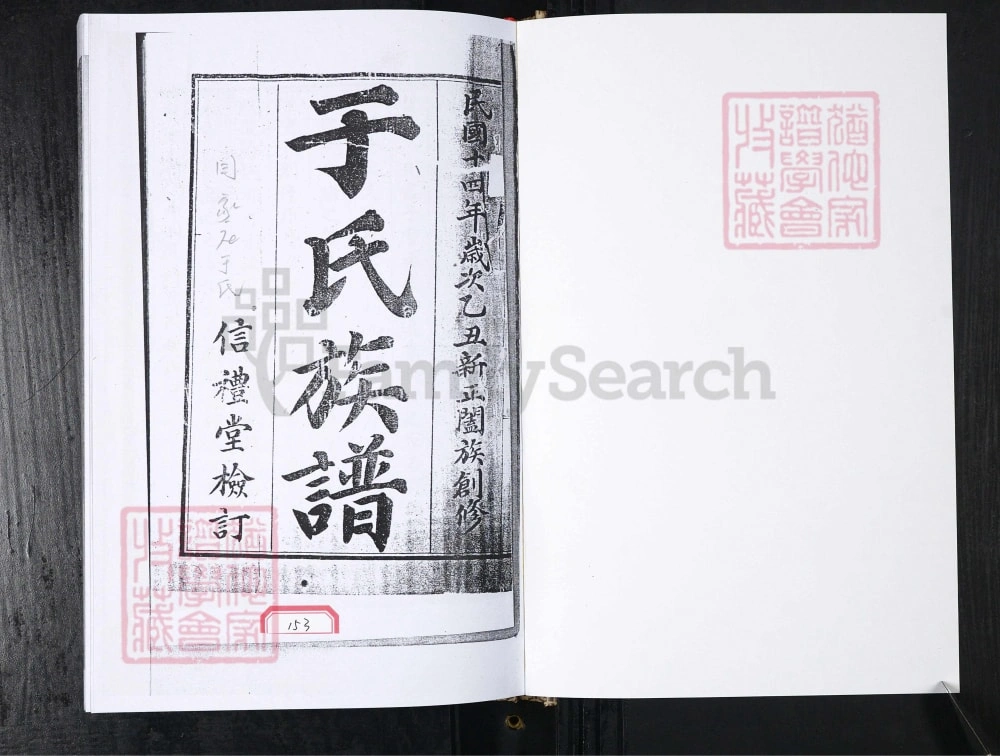 民國十四年歲次乙丑新正闔族創修
于氏族譜
信禮堂檢訂
于氏
153
FamilySearch
猶他家
譜學會
收藏
猶他家
譜學會
收藏